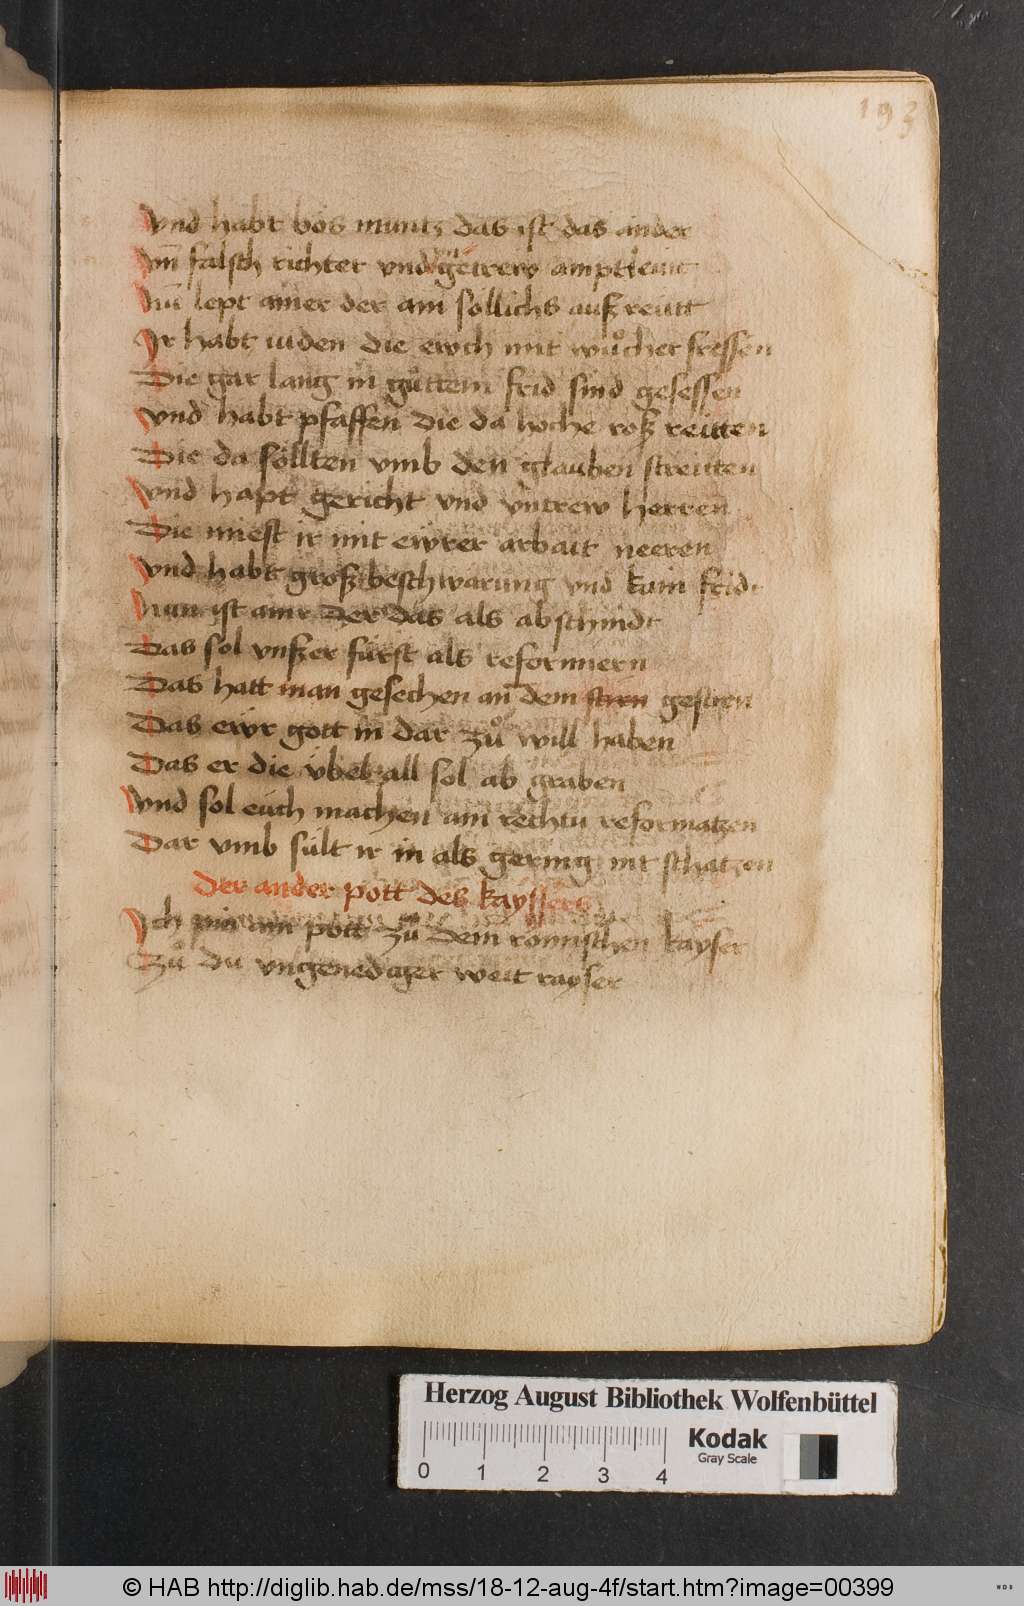 193
Vnd habt bös muntz das ist das ander
Vnd falsch richter vnd getrew amptleut
Nu lept ainer der am söllichs auß reutt
Ir habt iuden die ewch mit wuͦcher fressen
Die gar lang in guͦttem frid sind gesessen
Vnd habt pfaffen die da hoche roß reitten
Die da söllten vmb den glauben streitten
Vnd hapt gericht vnd vntrew herren
Die miest ir mit ewrer arbait neeren
Vnd habt groß beschwarung vnd kain frid
Nun ist ainr der das als abschnidt
Das sol vnßer fürst als reformiern
Das hatt man gesechen an dem stirn gestirn
Das ewr gott in dar zuͦ will haben
Das er die vbel all sol ab graben
Vnd sol euch machen ain rechtu reformatzen
Dar vmb sült ir in als gering nit schatzen
Der ander pott des kayssers
Ich pin ain pott zuͦ dem römischen kayser
Zuͦ du vngenediger weit rayser
Herzog August Bibliothek Wolfenbüttel
0 1 2 3 4
Kodak
Gray Scale
© HAB http://diglib.hab.de/mss/18-12-aug-4f/start.htm?image=00399